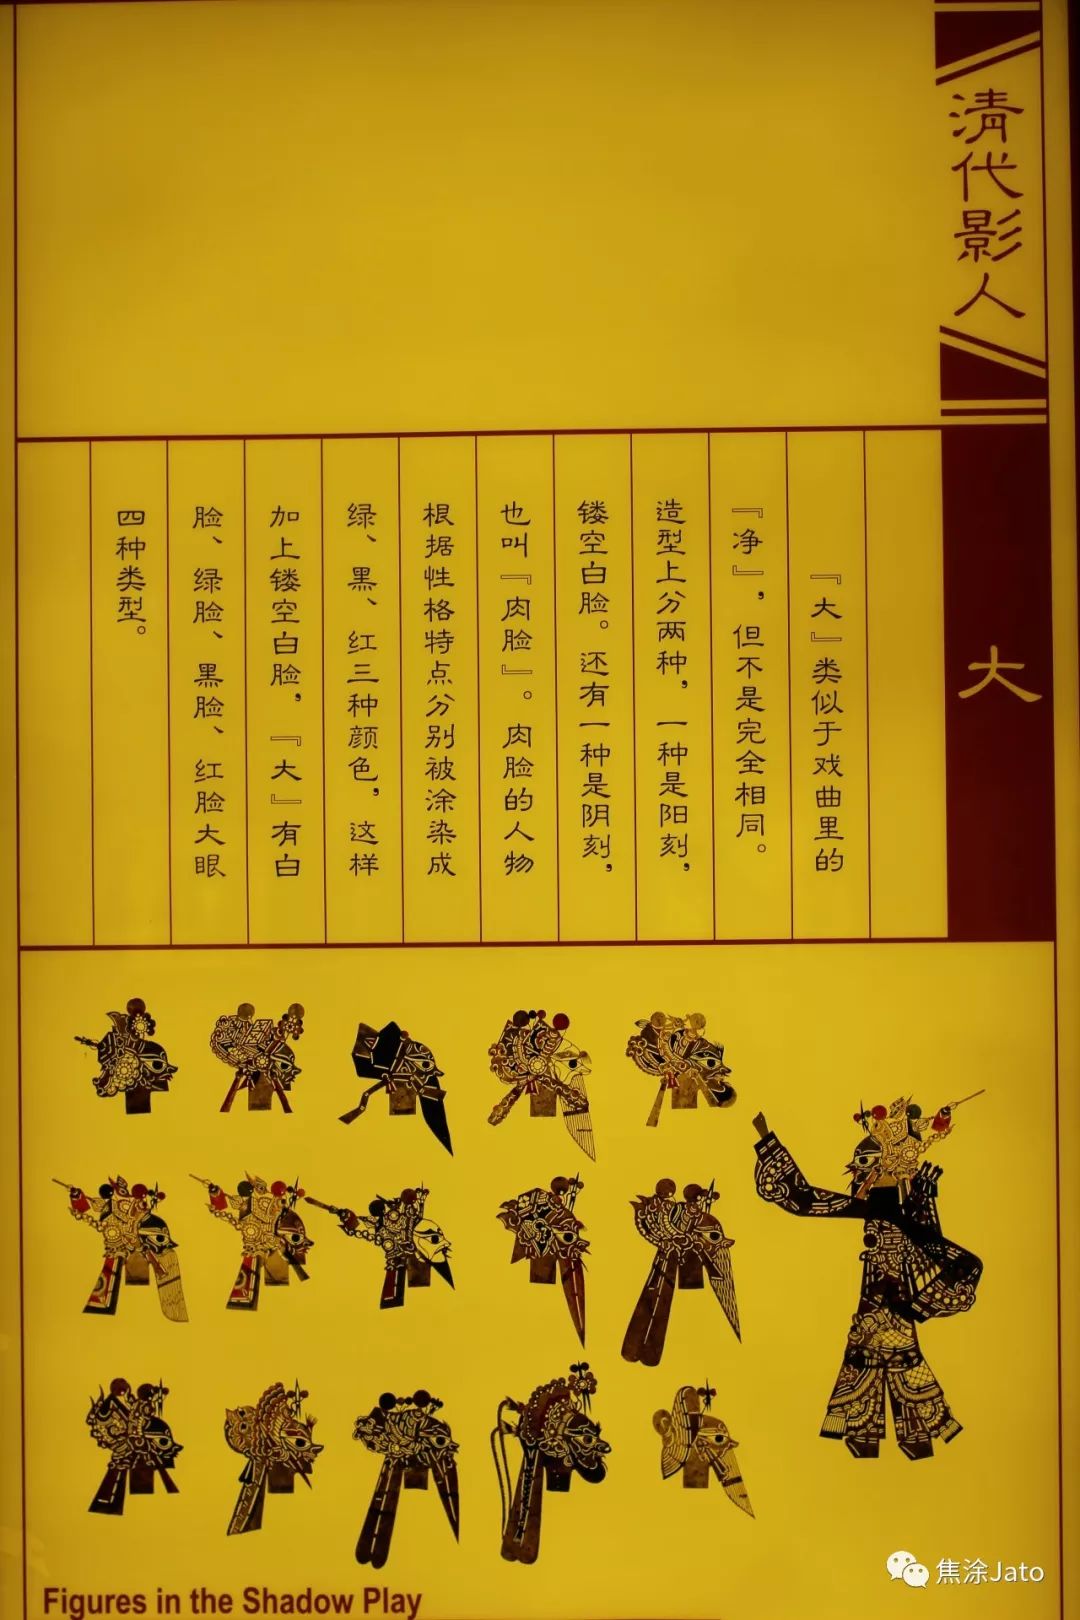 清代影人
大
『大』类似于戏曲里的
『净』，但不是完全相同。
造型上分两种，一种是阳刻，
镂空白脸。还有一种是阴刻，
也叫『肉脸』。肉脸的人物
根据性格特点分别被涂染成
绿、黑、红三种颜色，这样
加上镂空白脸，『大』有白
脸、绿脸、黑脸、红脸大眼
四种类型。
Figures in the Shadow Play
焦涂Jato